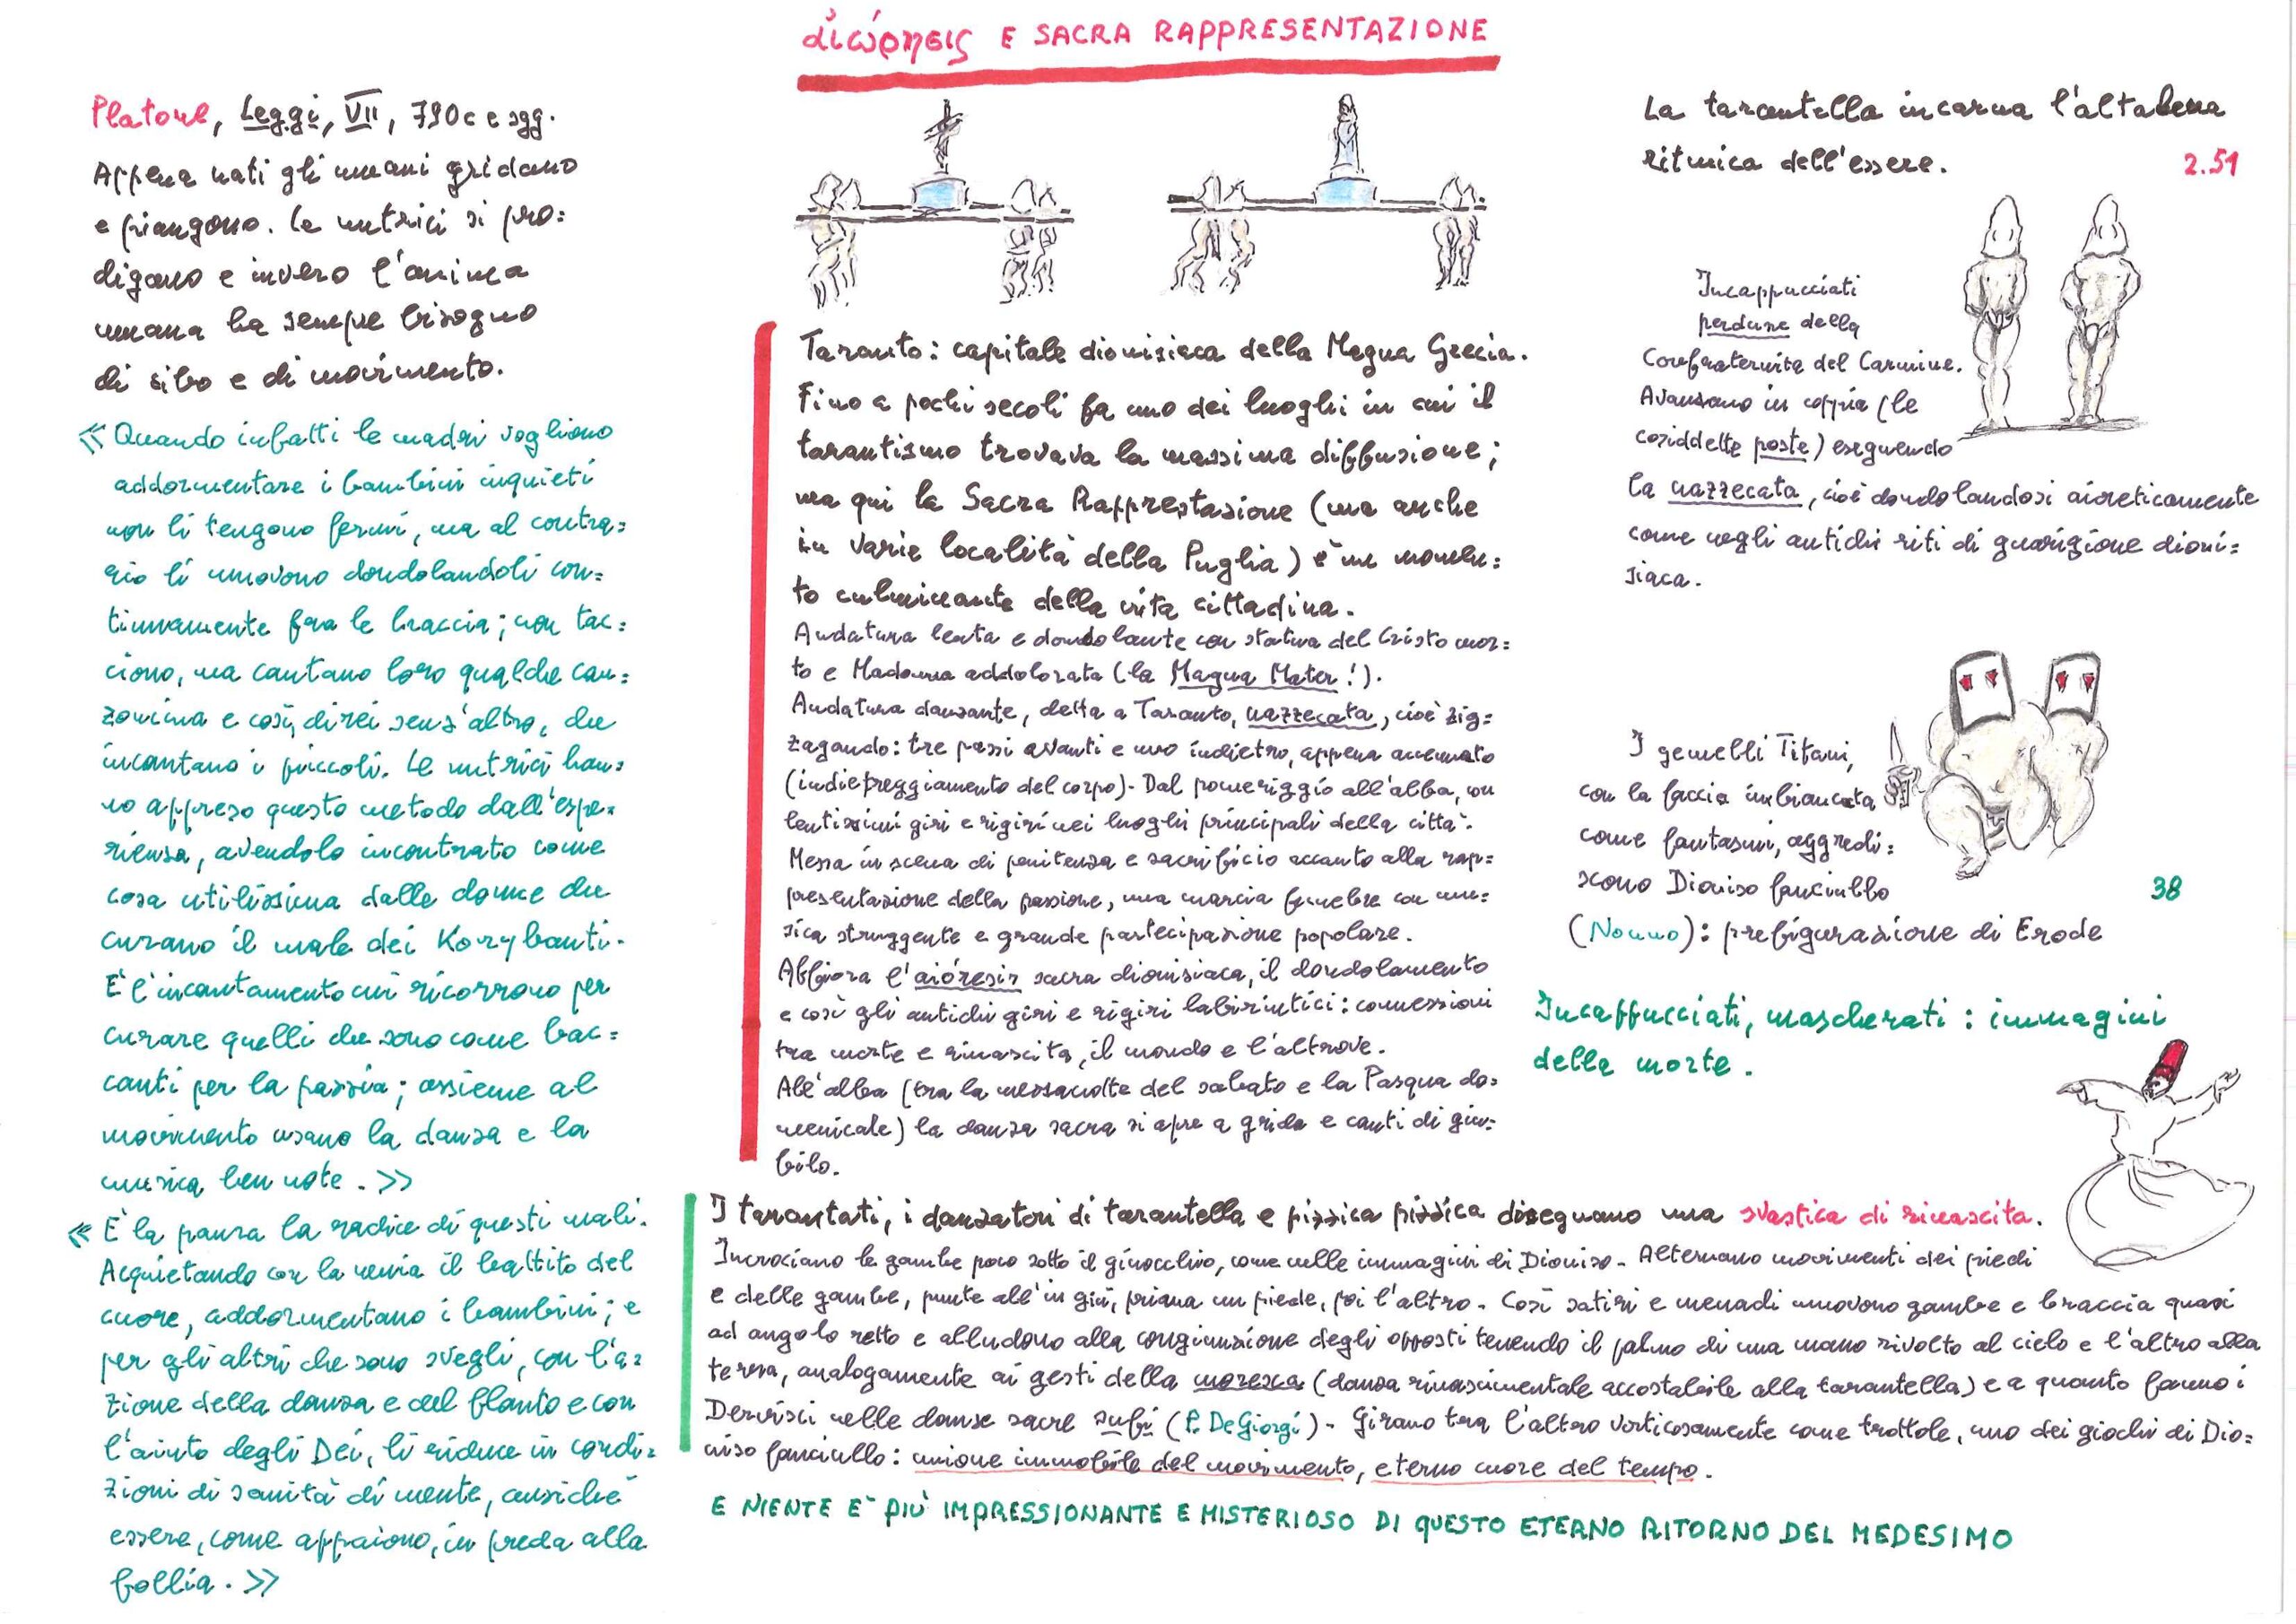 αἰώρησις E SACRA RAPPRESENTAZIONE
Platone, Leggi, VII, 790c e sgg.
Appena nati gli umani gridano
e piangono. Le nutrici si pro=
digano e invero l'anima
umana ha sempre bisogno
di cibo e di movimento.
«Quando infatti le madri vogliono
addormentare i bambini inquieti
non li tengono fermi, ma al contra=
rio li muovono dondolandoli con=
tinuamente fra le braccia; non tac=
ciono, ma cantano loro qualche can=
zoncina e così, direi senz'altro, che
incantano i piccoli. Le nutrici han=
no appreso questo metodo dall'espe=
rienza, avendolo incontrato come
cosa utilissima dalle donne che
curano il male dei Korybanti.
È l'incantamento cui ricorrono per
curare quelli che sono come bac=
canti per la pazzia; assieme al
movimento usano la danza e la
musica ben note.»
«È la paura la radice di questi mali.
Acquietando con la nenia il battito del
cuore, addormentano i bambini; e
per gli altri che sono svegli, con l'a=
zione della danza e del flauto e con
l'aiuto degli Dei, li riduce in condi=
zioni di sanità di mente, anziché
essere, come appaiono, in preda alla
follia.»
Taranto: capitale dionisiaca della Magna Grecia.
Fino a pochi secoli fa uno dei luoghi in cui il
tarantismo trovava la massima diffusione;
ma qui la Sacra Rapprestazione (ma anche
in varie località della Puglia) è un momen=
to culminante della vita cittadina.
Andatura lenta e dondolante con statua del Cristo mor=
to e Madonna addolorata (la Magna Mater!).
Andatura danzante, detta a Taranto, nazzecata, cioè zig=
zagando: tre passi avanti e uno indietro, appena accennato
(indietreggiamento del corpo). Dal pomeriggio all'alba, con
lentissimi giri e rigiri nei luoghi principali della città.
Messa in scena di penitenza e sacrificio accanto alla rap=
presentazione della passione, una marcia funebre con mu=
sica struggente e grande partecipazione popolare.
Affiora l'aióresis sacra dionisiaca, il dondolamento
e così gli antichi giri e rigiri labirintici: connessioni
tra morte e rinascita, il mondo e l'altrove.
All'alba (tra la mezzanotte del sabato e la Pasqua do=
menicale) la danza sacra si apre a grida e canti di giu=
bilo.
La tarantella incarna l'altalena
ritmica dell'essere. 2.51
Incappucciati
perdune della
Confraternita del Carmine.
Avanzano in coppia (le
cosiddette poste) eseguendo
la nazzecata, cioè dondolandosi aioreticamente
come negli antichi riti di guarigione dioni=
siaca.
I gemelli Titani,
con la faccia imbiancata
come fantasmi, aggredi=
scono Dioniso fanciullo 38
(Nonno): prefigurazione di Erode
Incappucciati, mascherati: immagini
della morte.
I tarantati, i danzatori di tarantella e pizzica pizzica disegnano una svastica di rinascita.
Incrociano le gambe poco sotto il ginocchio, come nelle immagini di Dioniso. Alternano movimenti dei piedi
e delle gambe, punte all'in giù, prima un piede, poi l'altro. Così satiri e menadi muovono gambe e braccia quasi
ad angolo retto e alludono alla congiunzione degli opposti tenendo il palmo di una mano rivolto al cielo e l'altro alla
terra, analogamente ai gesti della moresca (danza rinascimentale accostabile alla tarantella) e a quanto fanno i
Dervisci nelle danze sacre sufi (P. De Giorgi). Girano tra l'altro vorticosamente come trottole, uno dei giochi di Dio=
niso fanciullo: unione immobile del movimento, eterno cuore del tempo.
E NIENTE E' PIÙ IMPRESSIONANTE E MISTERIOSO DI QUESTO ETERNO RITORNO DEL MEDESIMO